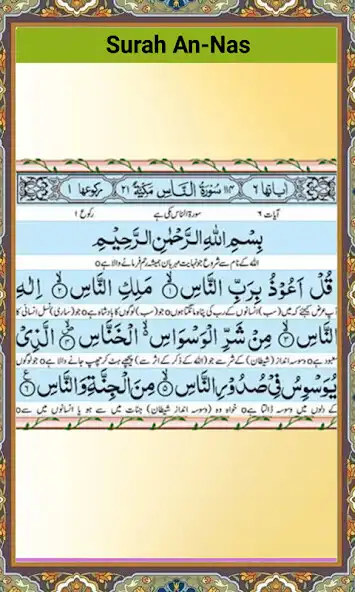 Surah An-Nas
اٰیاتها ٦ ١١٤ سُوْرَةُ النَّاسِ مَكِّيَّةٌ ٢١ رکوعها ١
آیات ٦ سورۃ الناس مکی ہے رکوع ١
بِسْمِ اللهِ الرَّحْمٰنِ الرَّحِيْمِ
اللہ کے نام سے شروع جو نہایت مہربان ہمیشہ رحم فرمانے والا ہے o
قُلْ اَعُوْذُ بِرَبِّ النَّاسِ ۙ۱ مَلِكِ النَّاسِ ۙ۲ اِلٰهِ
آپ عرض کیجئے کہ میں (سب) انسانوں کے رب کی پناہ مانگتا ہوں o جو (سب) لوگوں کا بادشاہ ہے o جو (ساری) نسل انسانی کا
النَّاسِ ۙ۳ مِنْ شَرِّ الْوَسْوَاسِ ۙ۬ الْخَنَّاسِ ۪ۙ۴ الَّذِيْ
معبود ہے o وسوسہ انداز (شیطان) کے شر سے جو (اللہ کے ذکر کے اثر سے) پیچھے ہٹ کر چھپ جانے والا ہے o جو لوگوں
يُوَسْوِسُ فِيْ صُدُوْرِ النَّاسِ ۙ۵ مِنَ الْجِنَّةِ وَ النَّاسِ ۶
کے دلوں میں وسوسہ ڈالتا ہے o خواہ وہ (وسوسہ انداز شیطان) جنات میں سے ہو یا انسانوں میں سے o